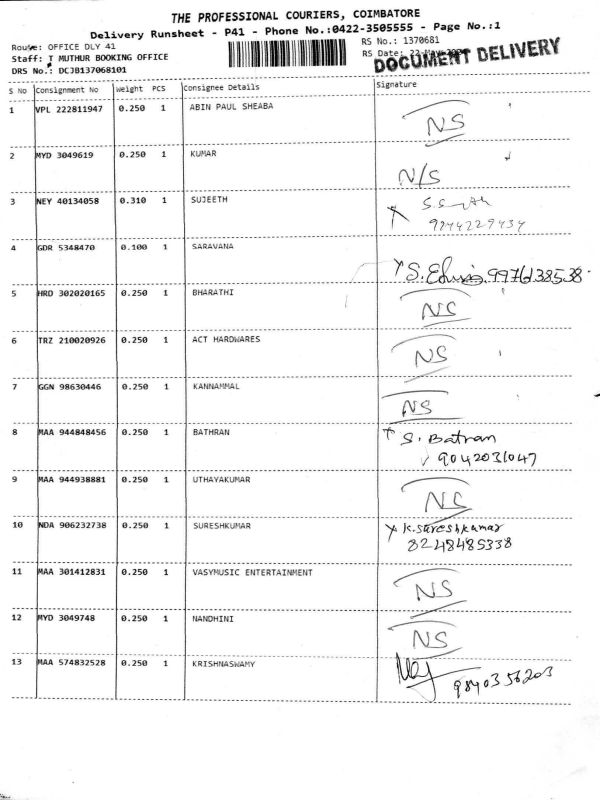 THE PROFESSIONAL COURIERS, COIMBATORE
Delivery Runsheet - P41 - Phone No.:0422-3505555 - Page No.:1
Route: OFFICE DLY 41
RS No.: 1370681
Staff: T MUTHUR BOOKING OFFICE
RS Date: 22-May
DOCUMENT DELIVERY
DRS No.: DCJB137068101
S No Consignment No Weight PCS Consignee Details Signature
1 VPL 222811947 0.250 1 ABIN PAUL SHEABA
NS
2 MYD 3049619 0.250 1 KUMAR
N/S
3 NEY 40134058 0.310 1 SUJEETH
9244229434
4 GDR 5348470 0.100 1 SARAVANA
9976138538
5 HRD 302020165 0.250 1 BHARATHI
NS
6 TRZ 210020926 0.250 1 ACT HARDWARES
NS
7 GGN 98630446 0.250 1 KANNAMMAL
NS
8 MAA 944848456 0.250 1 BATHRAN
S. Batran
9042031047
9 MAA 944938881 0.250 1 UTHAYAKUMAR
NS
10 NDA 906232738 0.250 1 SURESHKUMAR
K.Sureshkumar
8248485338
11 MAA 301412831 0.250 1 VASYMUSIC ENTERTAINMENT
NS
12 MYD 3049748 0.250 1 NANDHINI
NS
13 MAA 574832528 0.250 1 KRISHNASWAMY
9840356203